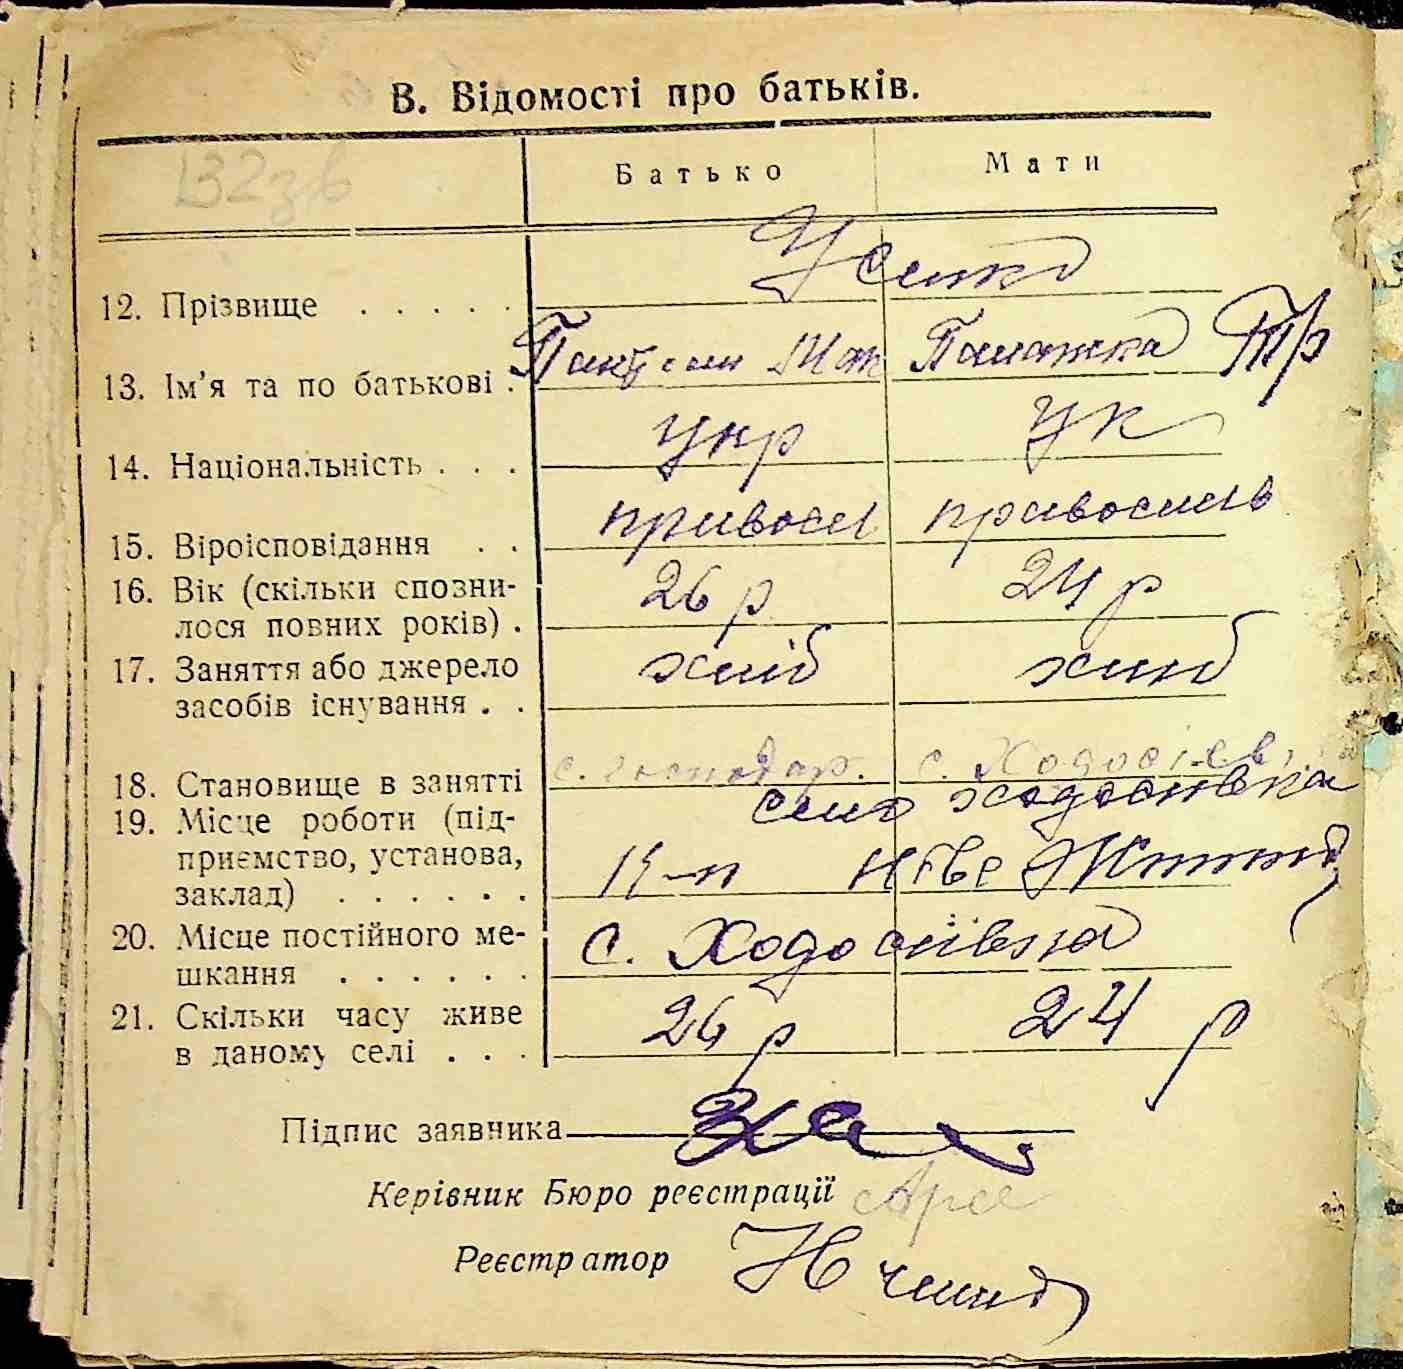 В. Відомості про батьків.
132 зв
Батько Мати
12. Прізвище . . . . . Усенко
13. Ім'я та по батькові . Пантелим Мат Палажка Тр
14. Національність . . . укр ук
15. Віроісповідання . . правосл православ
16. Вік (скільки сповни-
лося повних років) . 26 р 24 р
17. Заняття або джерело
засобів існування . . хліб хліб
18. Становище в занятті с. господар. с. Ходосієв
19. Місце роботи (під- село Ходосівка
приємство, установа,
заклад) . . . . . . к-п Нове Життя
20. Місце постійного ме-
шкання . . . . . . с. Ходосіївка
21. Скільки часу живе
в даному селі . . . 26 р 24 р
Підпис заявника
Керівник Бюро реєстрації
Реєстратор